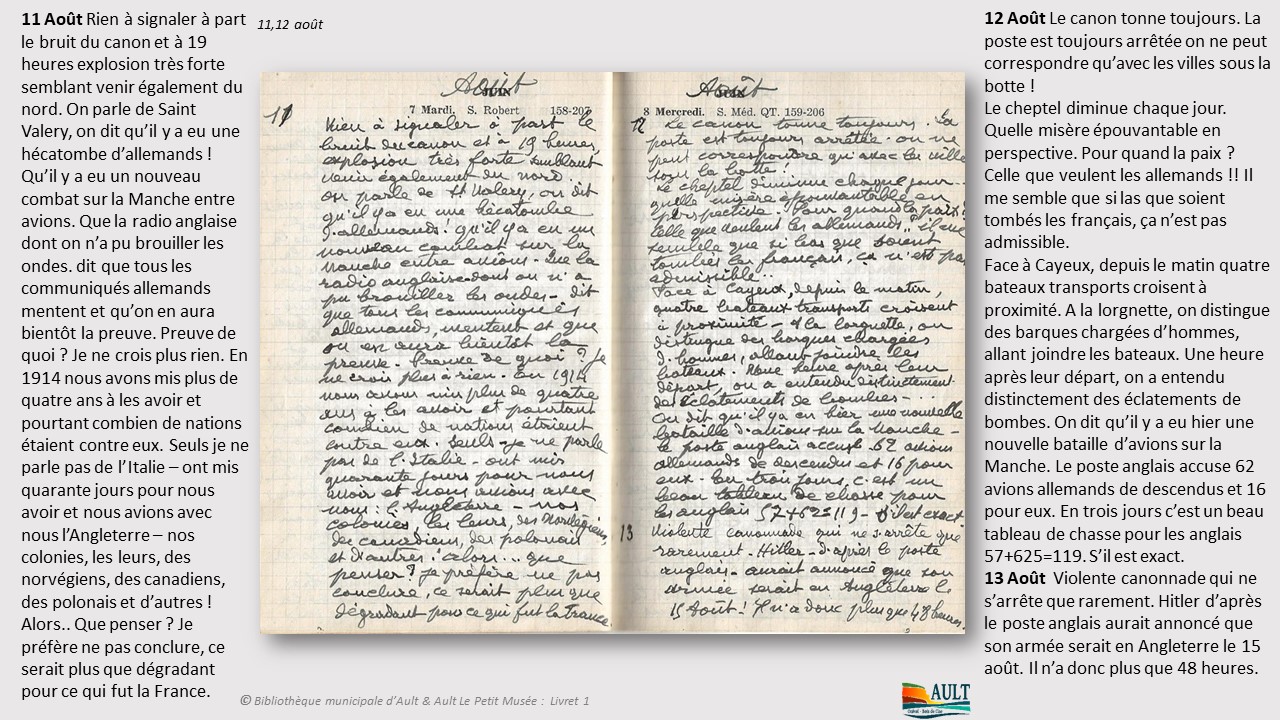 11 Août Rien à signaler à part
le bruit du canon et à 19
heures explosion très forte
semblant venir également du
nord. On parle de Saint
Valery, on dit qu'il y a eu une
hécatombe d'allemands !
Qu'il y a eu un nouveau
combat sur la Manche entre
avions. Que la radio anglaise
dont on n'a pu brouiller les
ondes. dit que tous les
communiqués allemands
mentent et qu'on en aura
bientôt la preuve. Preuve de
quoi ? Je ne crois plus rien. En
1914 nous avons mis plus de
quatre ans à les avoir et
pourtant combien de nations
étaient contre eux. Seuls je ne
parle pas de l'Italie – ont mis
quarante jours pour nous
avoir et nous avions avec
nous l'Angleterre – nos
colonies, les leurs, des
norvégiens, des canadiens,
des polonais et d'autres !
Alors.. Que penser ? Je
préfère ne pas conclure, ce
serait plus que dégradant
pour ce qui fut la France.
11,12 août
Août
JUIN
7 Mardi. S. Robert 158-207
11
Rien à signaler à part le
bruit du canon et à 19 heures,
explosion très forte semblant
venir également du nord.
on parle de St Valery, on dit
qu'il y a eu une hécatombe
d'allemands! qu'il y a eu un
nouveau combat sur la
Manche entre avions. Que la
radio anglaise dont on n'a
pu brouiller les ondes - dit
que tous les communiqués
allemands, mentent et que
on en aura bientôt la
preuve. Preuve de quoi ? Je
ne crois plus à rien. En 1914
nous avons mis plus de quatre
ans à les avoir et pourtant
combien de nations étaient
contre eux. Seuls - je ne parle
pas de l'Italie - ont mis
quarante jours pour nous
avoir et nous avions avec
nous : l'Angleterre - nos
colonies, les leurs, des Norvégiens,
des canadiens, des polonais
et d'autres ! alors... que
penser ? Je préfère ne pas
conclure, ce serait plus que
dégradant pour ce qui fut la France.
Août
JUIN
8 Mercredi. S. Méd. QT. 159-206
12
Le canon tonne toujours. La
poste est toujours arrêtée on ne
peut correspondre qu'avec les villes
sous la botte !
Le cheptel diminue chaque jour...
quelle misère épouvantable en
perspective. Pour quand la paix ?
celle que veulent les allemands.. il me
semble que si las que soient
tombés les français, ça n'est pas
admissible...
Face à Cayeux, depuis le matin,
quatre bateaux transports croisent
à proximité - A la lorgnette, on
distingue des barques chargées
d'hommes, allant joindre les
bateaux. Une heure après leur
départ, on a entendu distinctement
des éclatements de bombes - ...
On dit qu'il y a eu hier une nouvelle
bataille d'avions sur la Manche -
le poste anglais accuse 62 avions
allemands de descendus et 16 pour
eux. En trois jours, c'est un
beau tableau de chasse pour
les anglais 57+62=119 - S'il est exact.
13
Violente canonnade qui ne s'arrête que
rarement. Hitler - d'après le poste
anglais - aurait annoncé que son
armée serait en Angleterre le
15 Août ! Il n'a donc plus que 48 heures.
12 Août Le canon tonne toujours. La
poste est toujours arrêtée on ne peut
correspondre qu'avec les villes sous la
botte !
Le cheptel diminue chaque jour.
Quelle misère épouvantable en
perspective. Pour quand la paix ?
Celle que veulent les allemands !! Il
me semble que si las que soient
tombés les français, ça n'est pas
admissible.
Face à Cayeux, depuis le matin quatre
bateaux transports croisent à
proximité. A la lorgnette, on distingue
des barques chargées d'hommes,
allant joindre les bateaux. Une heure
après leur départ, on a entendu
distinctement des éclatements de
bombes. On dit qu'il y a eu hier une
nouvelle bataille d'avions sur la
Manche. Le poste anglais accuse 62
avions allemands de descendus et 16
pour eux. En trois jours c'est un beau
tableau de chasse pour les anglais
57+625=119. S'il est exact.
13 Août Violente canonnade qui ne
s'arrête que rarement. Hitler d'après
le poste anglais aurait annoncé que
son armée serait en Angleterre le 15
août. Il n'a donc plus que 48 heures.
© Bibliothèque municipale d'Ault & Ault Le Petit Musée : Livret 1
AULT